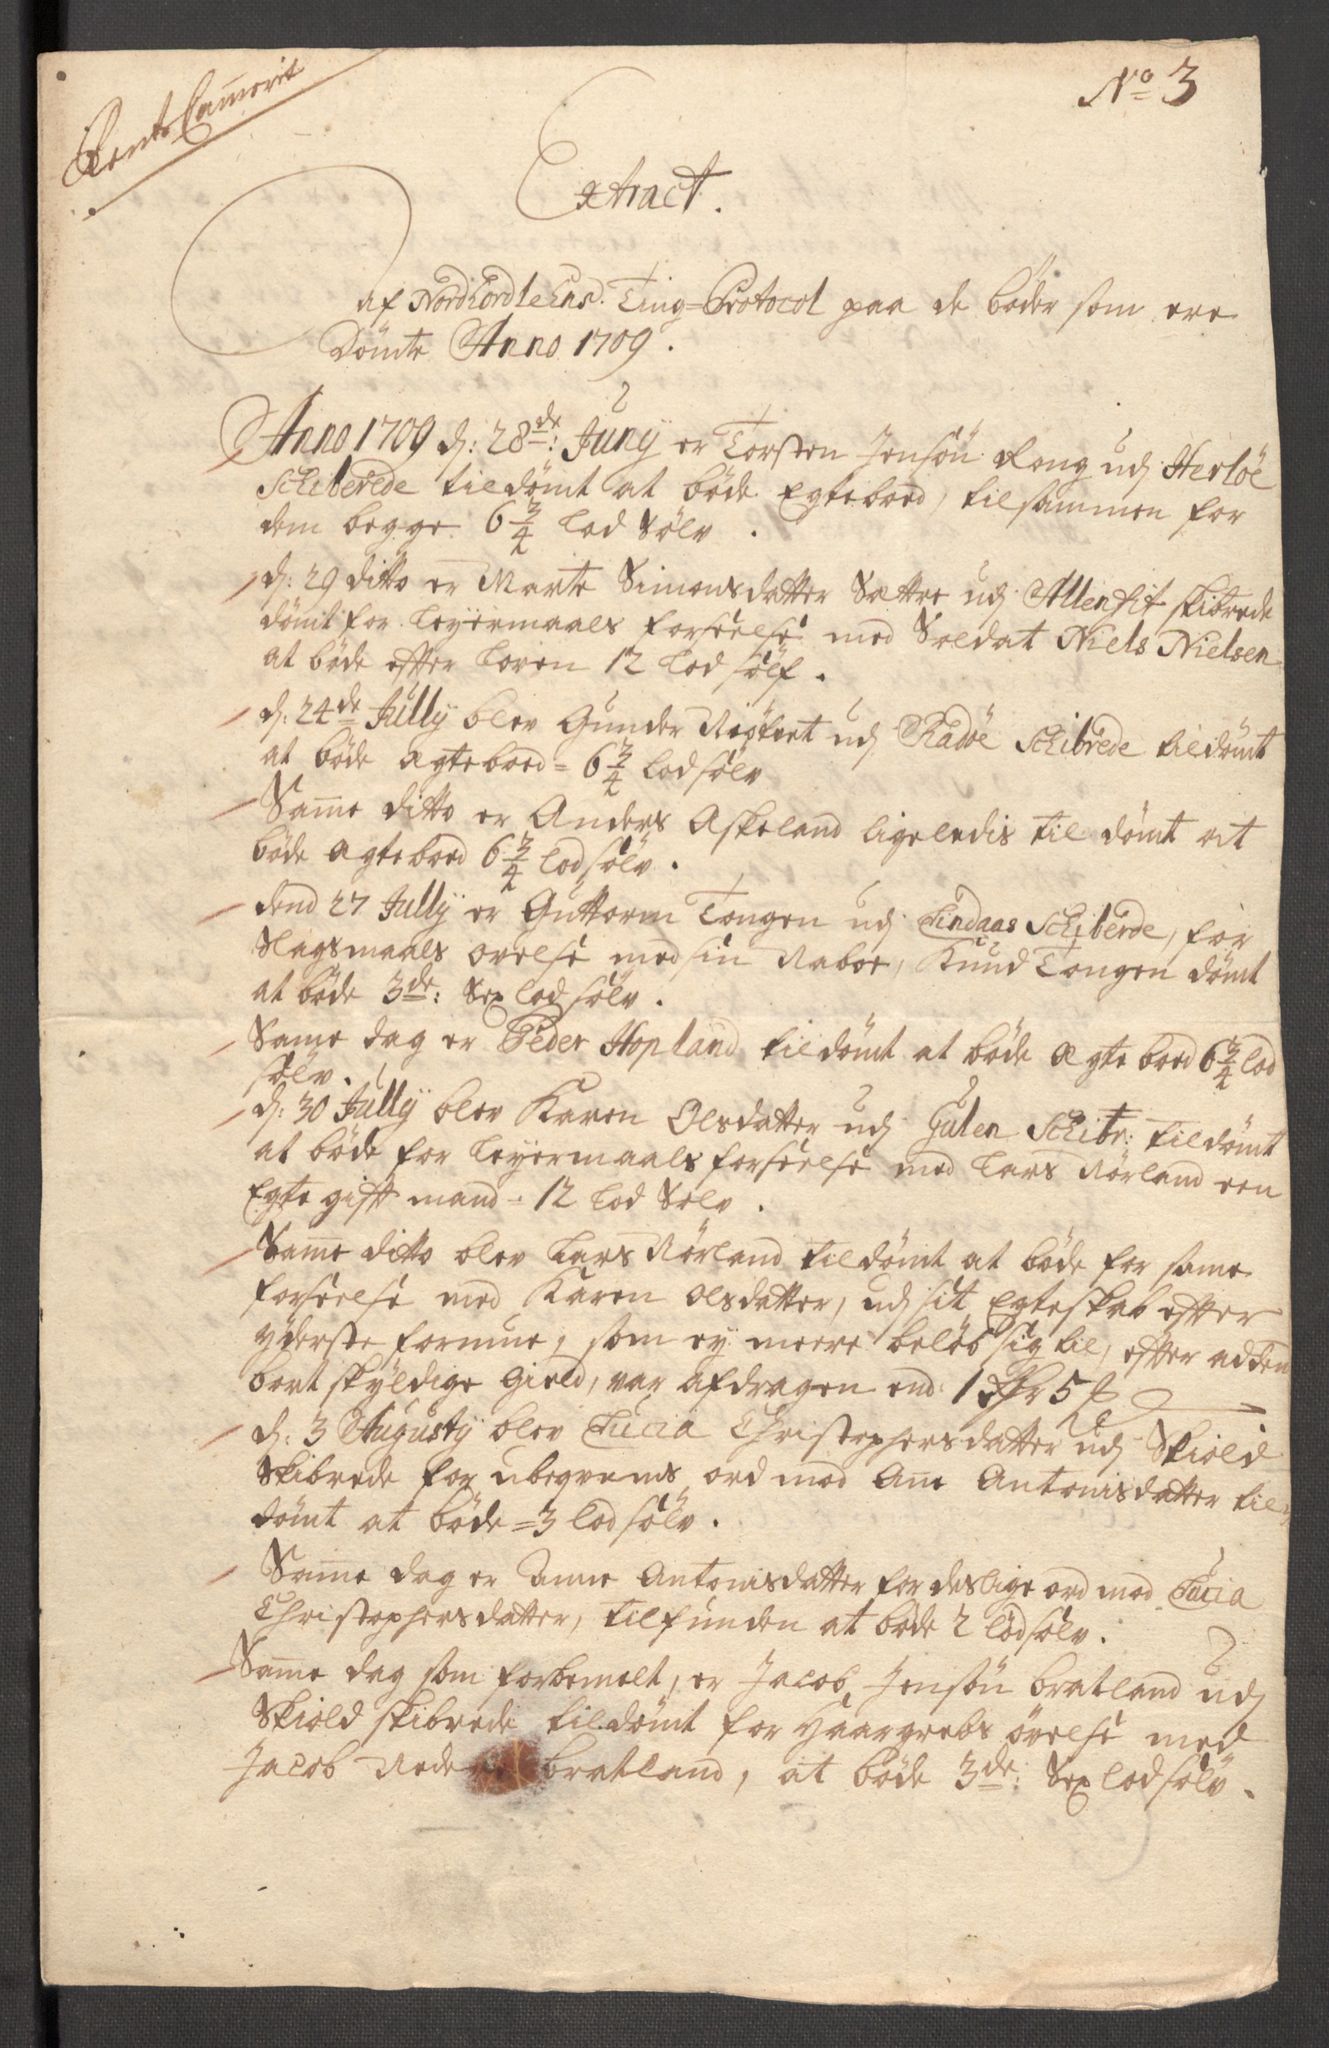 Rente Cammerit
No 3
Extract.
af Nordhordlehns Ting-Protocol paa de bøder som ere
Dömte Anno 1709.
Anno 1709 d: 28de: Junÿ er Torsten Jensön Rong udj Herlöe
Schiberede tildömt at böde Egteboed, tilsammen for
dem begge 6 3/4 Lod Sölv.
d: 29 ditto er Marte Simonsdatter Sættre udj Allenfit skibrede
dömt for Leyermaals forseelse med Soldat Niels Nielsen
at böde efter Loven 12 Lod sölf.
d: 24de Jullÿ blev Gunder udj Radöe Schibrede tildömt
at böde ægteboed = 6 3/4 lod sölv
Sam̄e ditto er Anders Askeland ligeledis til dömt at
böde ægteboed 6 3/4 lod sölv.
dend 27 Jullÿ er Guttorm Tongen udj Lindaas Schiberde, for
Slagsmaals övelse med sin Naboe, Knud Tongen dömt
at böde 3de: Sex lod sölv.
Same dag er Peder Hopland tildömt at böde ægteboed 6 3/4 Lod
sölv.
d: 30 Jullÿ blev Karen Olsdatter udj Gulen Schibr: tildömt
at böde for Leyermaals forseelse med Lars Rörland een
Egte gift mand - 12 Lod Sölv.
Sam̄e ditto blev Lars Rörland tildömt at böde for same
forseelse med Karen Olsdatter, udj sit Egteskab efter
yderste formue, som ey meere belöb sig til, efter ad den
bort skÿldige Gield, var afdragen end 1 Rdr 5 s
d: 3 Augustÿ blev Lucia Christophersdatter udj Skiold
Skibrede for ubeqvems ord mod An̄e Antonisdatter til
dömt at böde = 3 lod sölv.
Sam̄e dag er Anne Antonisdatter for deslige ord mod Lucia
Christophersdatter, tilfunden at böde 2 lod sölv.
Sam̄e dag som forbemelt, er Jacob Jensön bratland udj
Skiold skibrede tildömt for Haargrebs övelse med
Jacob bratland, at böde 3de: Sex lod sölv.